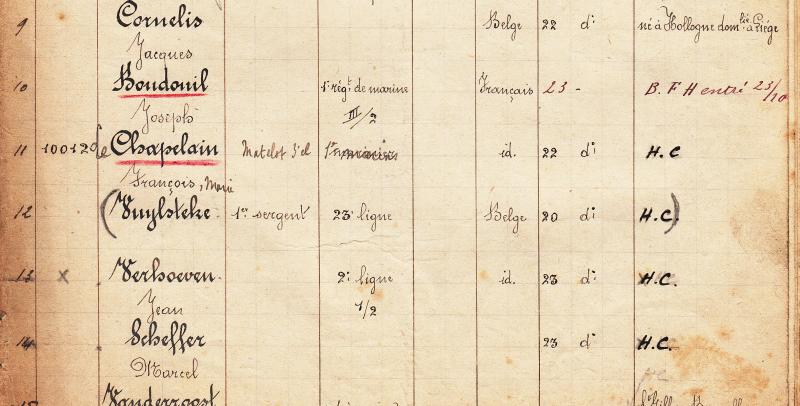 9 Cornelis Belge 22 dº né à Hollogne domlié à Liége
Jacques
10 Boudouil 1 régt de marine Français 23 - B. F H entré 23/10
Joseph III/2
11 100120 le Chapelain Matelot 3' cl id. 22 dº H.C
François, Marie
12 (Vuylsteke 1er sergent 23' ligne Belge 20 dº H.C.)
13 x Verhoeven 2' ligne id. 23 dº H.C.
Jean 1/2
14 Scheffer 23 dº H.C.
Marcel